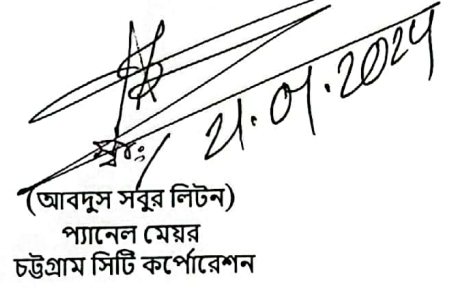 স্বাঃ/ 21.07.2024
(আবদুস সবুর লিটন)
প্যানেল মেয়র
চট্টগ্রাম সিটি কর্পোরেশন